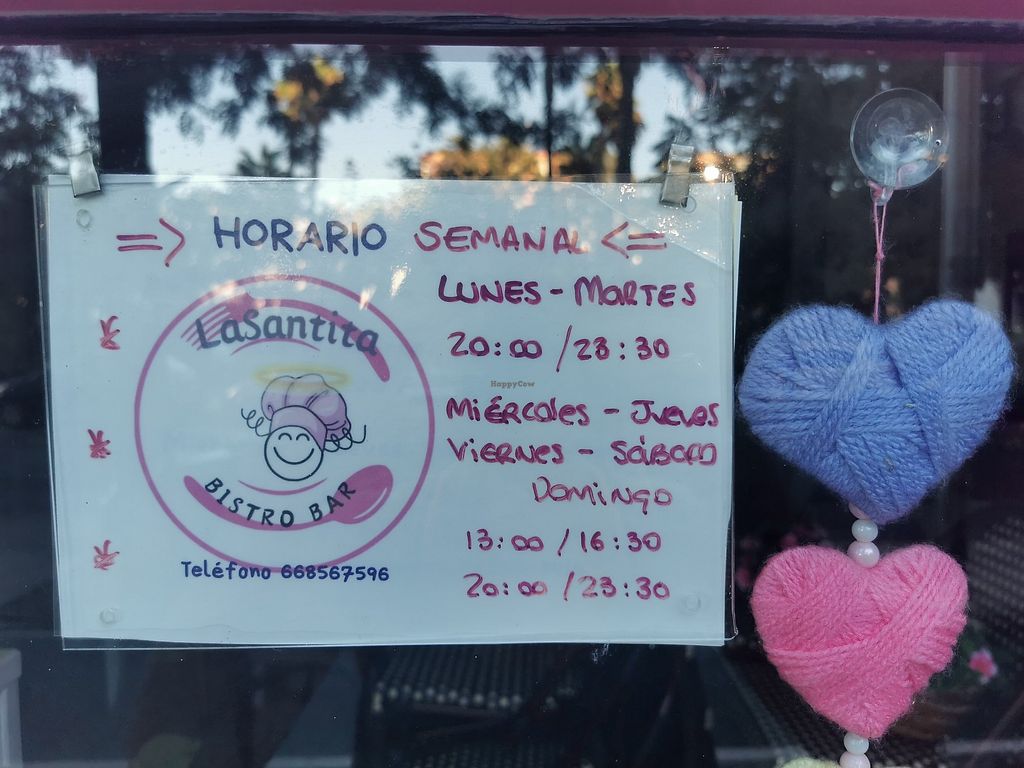 => HORARIO SEMANAL <=
LaSantita
BISTRO BAR
Teléfono 668567596
LUNES - MARTES
20:00 / 23:30
HappyCow
MIÉRCOLES - JUEVES
VIERNES - SÁBADO
DOMINGO
13:00 / 16:30
20:00 / 23:30